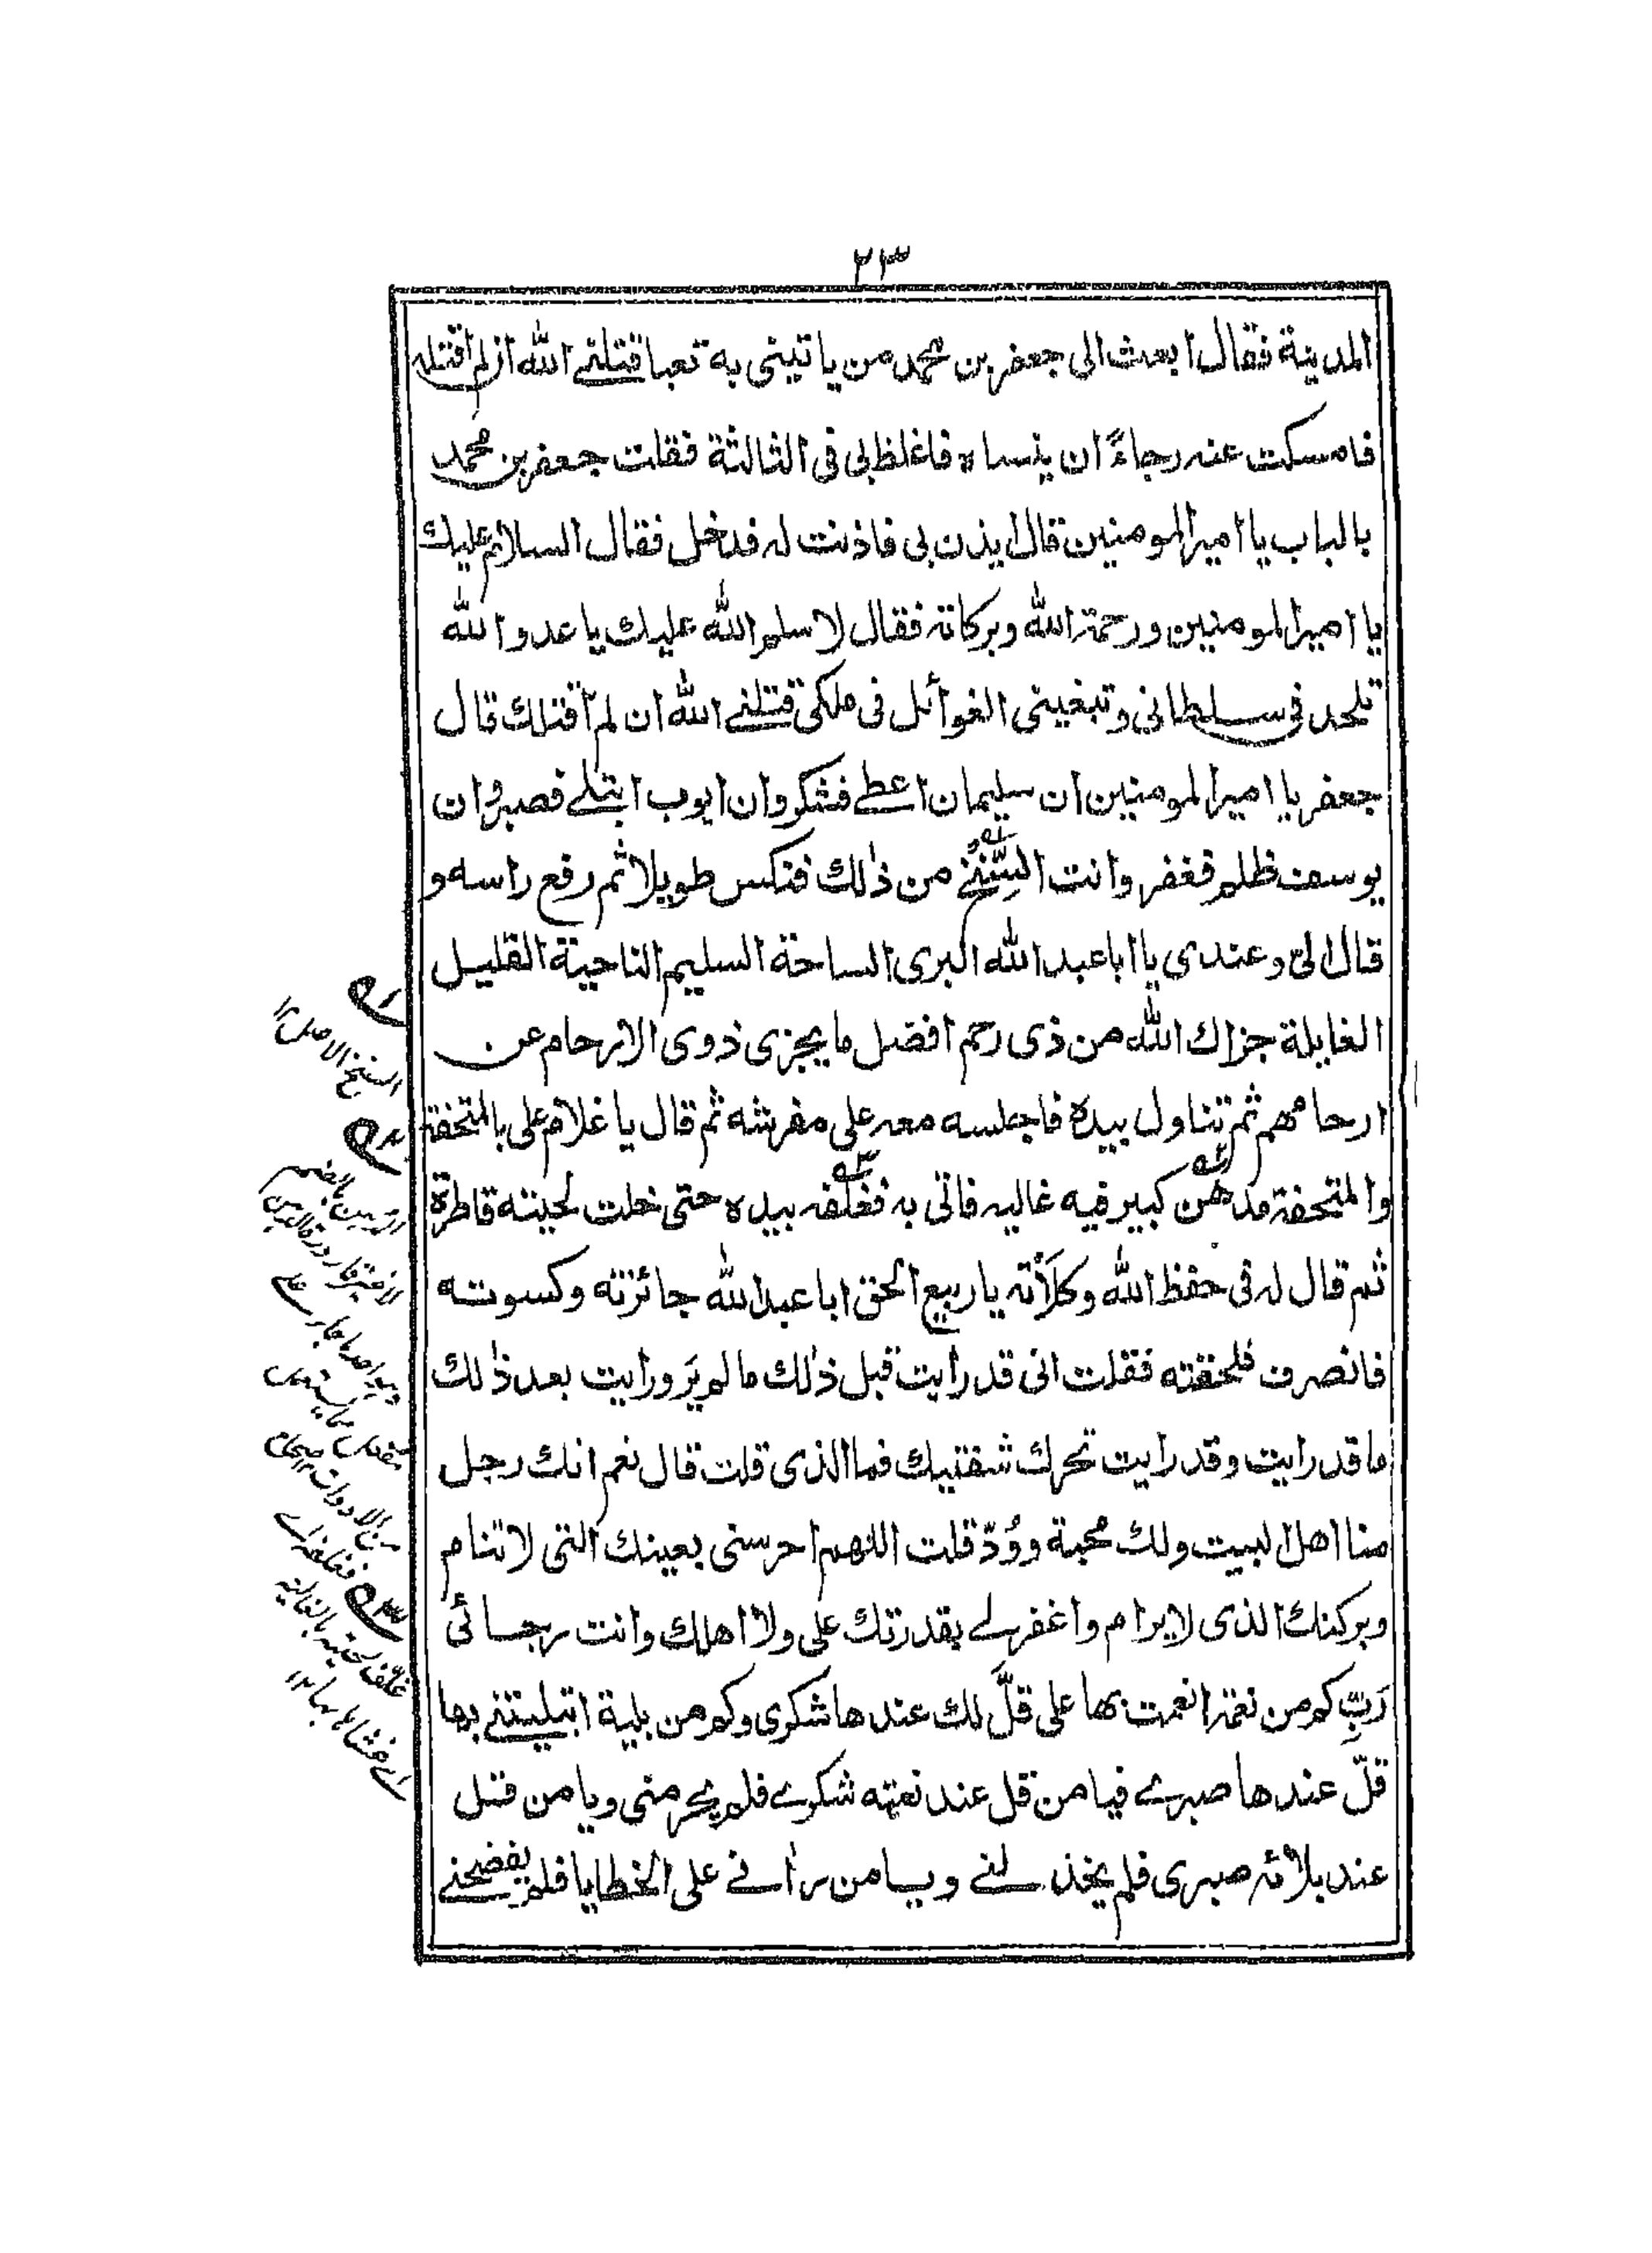 ٢٣
المدينة فقال ابعث الى جعفر بن محمد من ياتينى به تعبا قتلنے الله ان لم اقتله
فامسكت عنه رجاءً ان ينساه فاغلظ بى فى الثالثة فقلت جعفر بن محمد
بالباب يا امير المومنين قال ايذن بى فاذنت له فدخل فقال السلام عليك
يا امير المومنين ورحمة الله وبركاته فقال لا سلم الله عليك يا عدو الله
تلحد فى سلطانى وتبغينى الغوائل فى ملكى قتلنے الله ان لم اقتلك قال
جعفر يا امير المومنين ان سليمان اعطے فشكر وان ايوب ابتلے فصبر وان
يوسف ظلم فغفر وانت السِّنْخُ من ذٰلك فنكس طويلا ثم رفع راسه و
قال الىّ وعندى يا ابا عبد الله البرى الساحة السليم الناحية القليل
الغايلة جزاك الله من ذى رحم افضل ما يجزى ذوى الارحام عن
ارحامهم ثم تناول بيده فاجلسه معه على مفرشه ثم قال يا غلام على بالمتحفة
والمتحفة مدهن كبير فيه غاليه فاتى به فغلفه بيده حتى خلت لحيته قاطرة
ثم قال له فى حفظ الله وكلأته يا ربيع الحق ابا عبد الله جائزته وكسوته
فانصرف فلحقته فقلت انى قد رايت قبل ذٰلك ما لم يَر ورايت بعد ذٰلك
ما قد رايت وقد رايت تحرك شفتيك فما الذى قلت قال نعم انك رجل
منا اهل البيت ولك محبة ووُدّ قلت اللهم احرسنى بعينك التى لا تنام
وبركنك الذى لا يرام واغفر لے بقدرتك على ولا اهلك وانت رجائى
رَبِّ كم من نعمة انعمت بها على قلَّ لك عندها شكرى وكم من بلية ابتليتنے بها
قلّ عندها صبرے فيا من قل عند نعمته شكرے فلم يحرمنى ويا من قل
عند بلائه صبرى فلم يخذلنے ويا من راٰنے على الخطايا فلم يفضحنے
السنخ الاصل ١٢